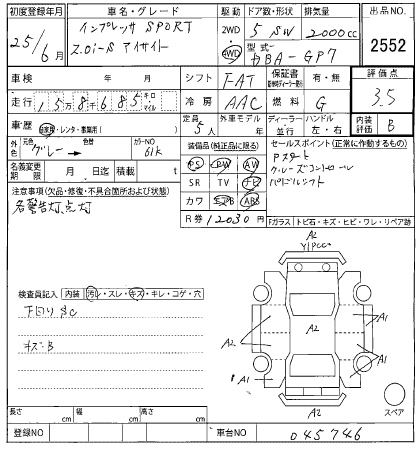 初度登録年月
25/6月
車名・グレード
インプレッサ SPORT
2.0i-S アイサイト
駆動
2WD
4WD
ドア数・形状
5 SW
排気量
2000cc
型式
DBA-GP7
出品NO.
2552
車検 年 月
シフト FAT
保証書 有・無
評価点
3.5
走行 15万8千685 キロ マイル
冷房 AAC
燃料 G
車歴 自家用・レンタ・事業用( )
定員 5人
外車モデル 年
ディーラー 並行
ハンドル 左・右
内装評価 B
外色 元色 グレー→ 色替
カラーNO 61K
装備品(純正品に限る)
PS PW AW
SR TV ナビ
カワ エアB ABS
R券 12030円
セールスポイント(正常に作動するもの)
Pスタート
クルーズコントロール
パドルシフト
名義変更期限 月 日迄
積載 t
注意事項(欠品・修復・不具合箇所および状態)
各警告灯点灯
Fガラス トビ石・キズ・ヒビ・ワレ・リペア跡
検査員記入 内装 汚レ・スレ・キズ・キレ・コゲ・穴
下回りSC
キズ・B
A2
A2
A2
A1
A1
A1
A2
スペア
長さ cm
幅 cm
高さ cm
登録NO
車台NO 045746